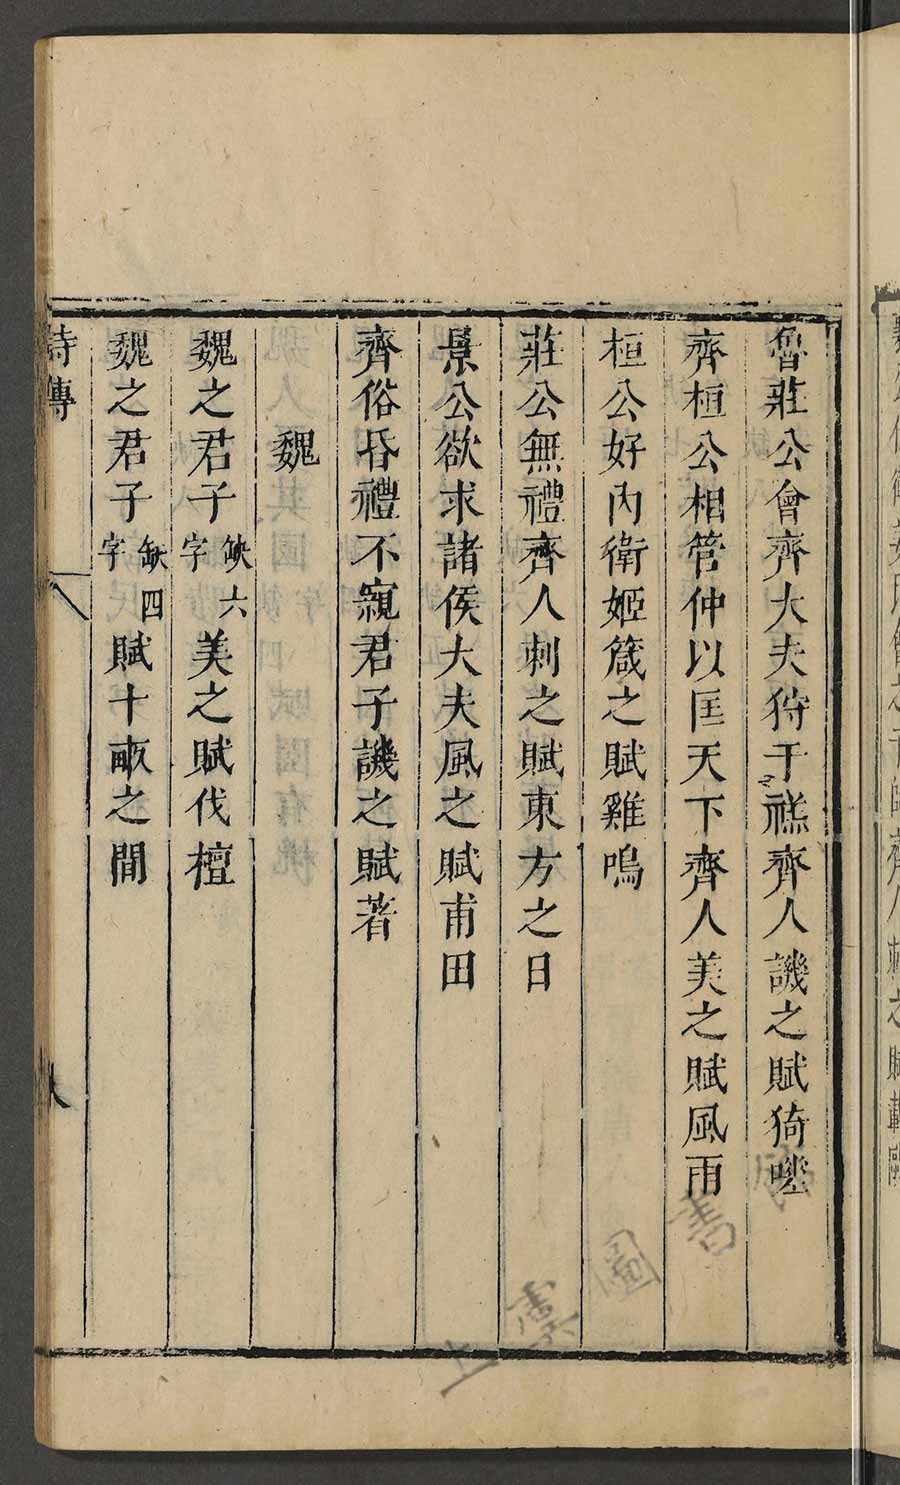 魯莊公會齊大夫狩于禚齊人譏之賦猗嗟
齊桓公相管仲以匡天下齊人美之賦風雨
桓公好內衛姬箴之賦雞鳴
莊公無禮齊人刺之賦東方之日
景公欲求諸侯大夫風之賦甫田
齊俗昏禮不親君子譏之賦著
魏
魏之君子缺六字美之賦伐檀
魏之君子缺四字賦十畝之間
詩傳
八